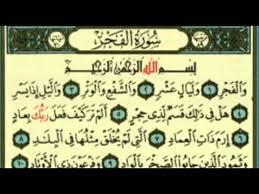 سُورَةُ الْفَجْرِ
بِسْمِ اللَّهِ الرَّحْمَٰنِ الرَّحِيمِ
وَالْفَجْرِ ١ وَلَيَالٍ عَشْرٍ ٢ وَالشَّفْعِ وَالْوَتْرِ ٣ وَاللَّيْلِ إِذَا يَسْرِ
٤ هَلْ فِي ذَٰلِكَ قَسَمٌ لِذِي حِجْرٍ ٥ أَلَمْ تَرَ كَيْفَ فَعَلَ رَبُّكَ بِعَادٍ
٦ إِرَمَ ذَاتِ الْعِمَادِ ٧ الَّتِي لَمْ يُخْلَقْ مِثْلُهَا فِي الْبِلَادِ
٨ وَثَمُودَ الَّذِينَ جَابُوا الصَّخْرَ بِالْوَادِ ٩ وَفِرْعَوْنَ ذِي الْأَوْتَادِ